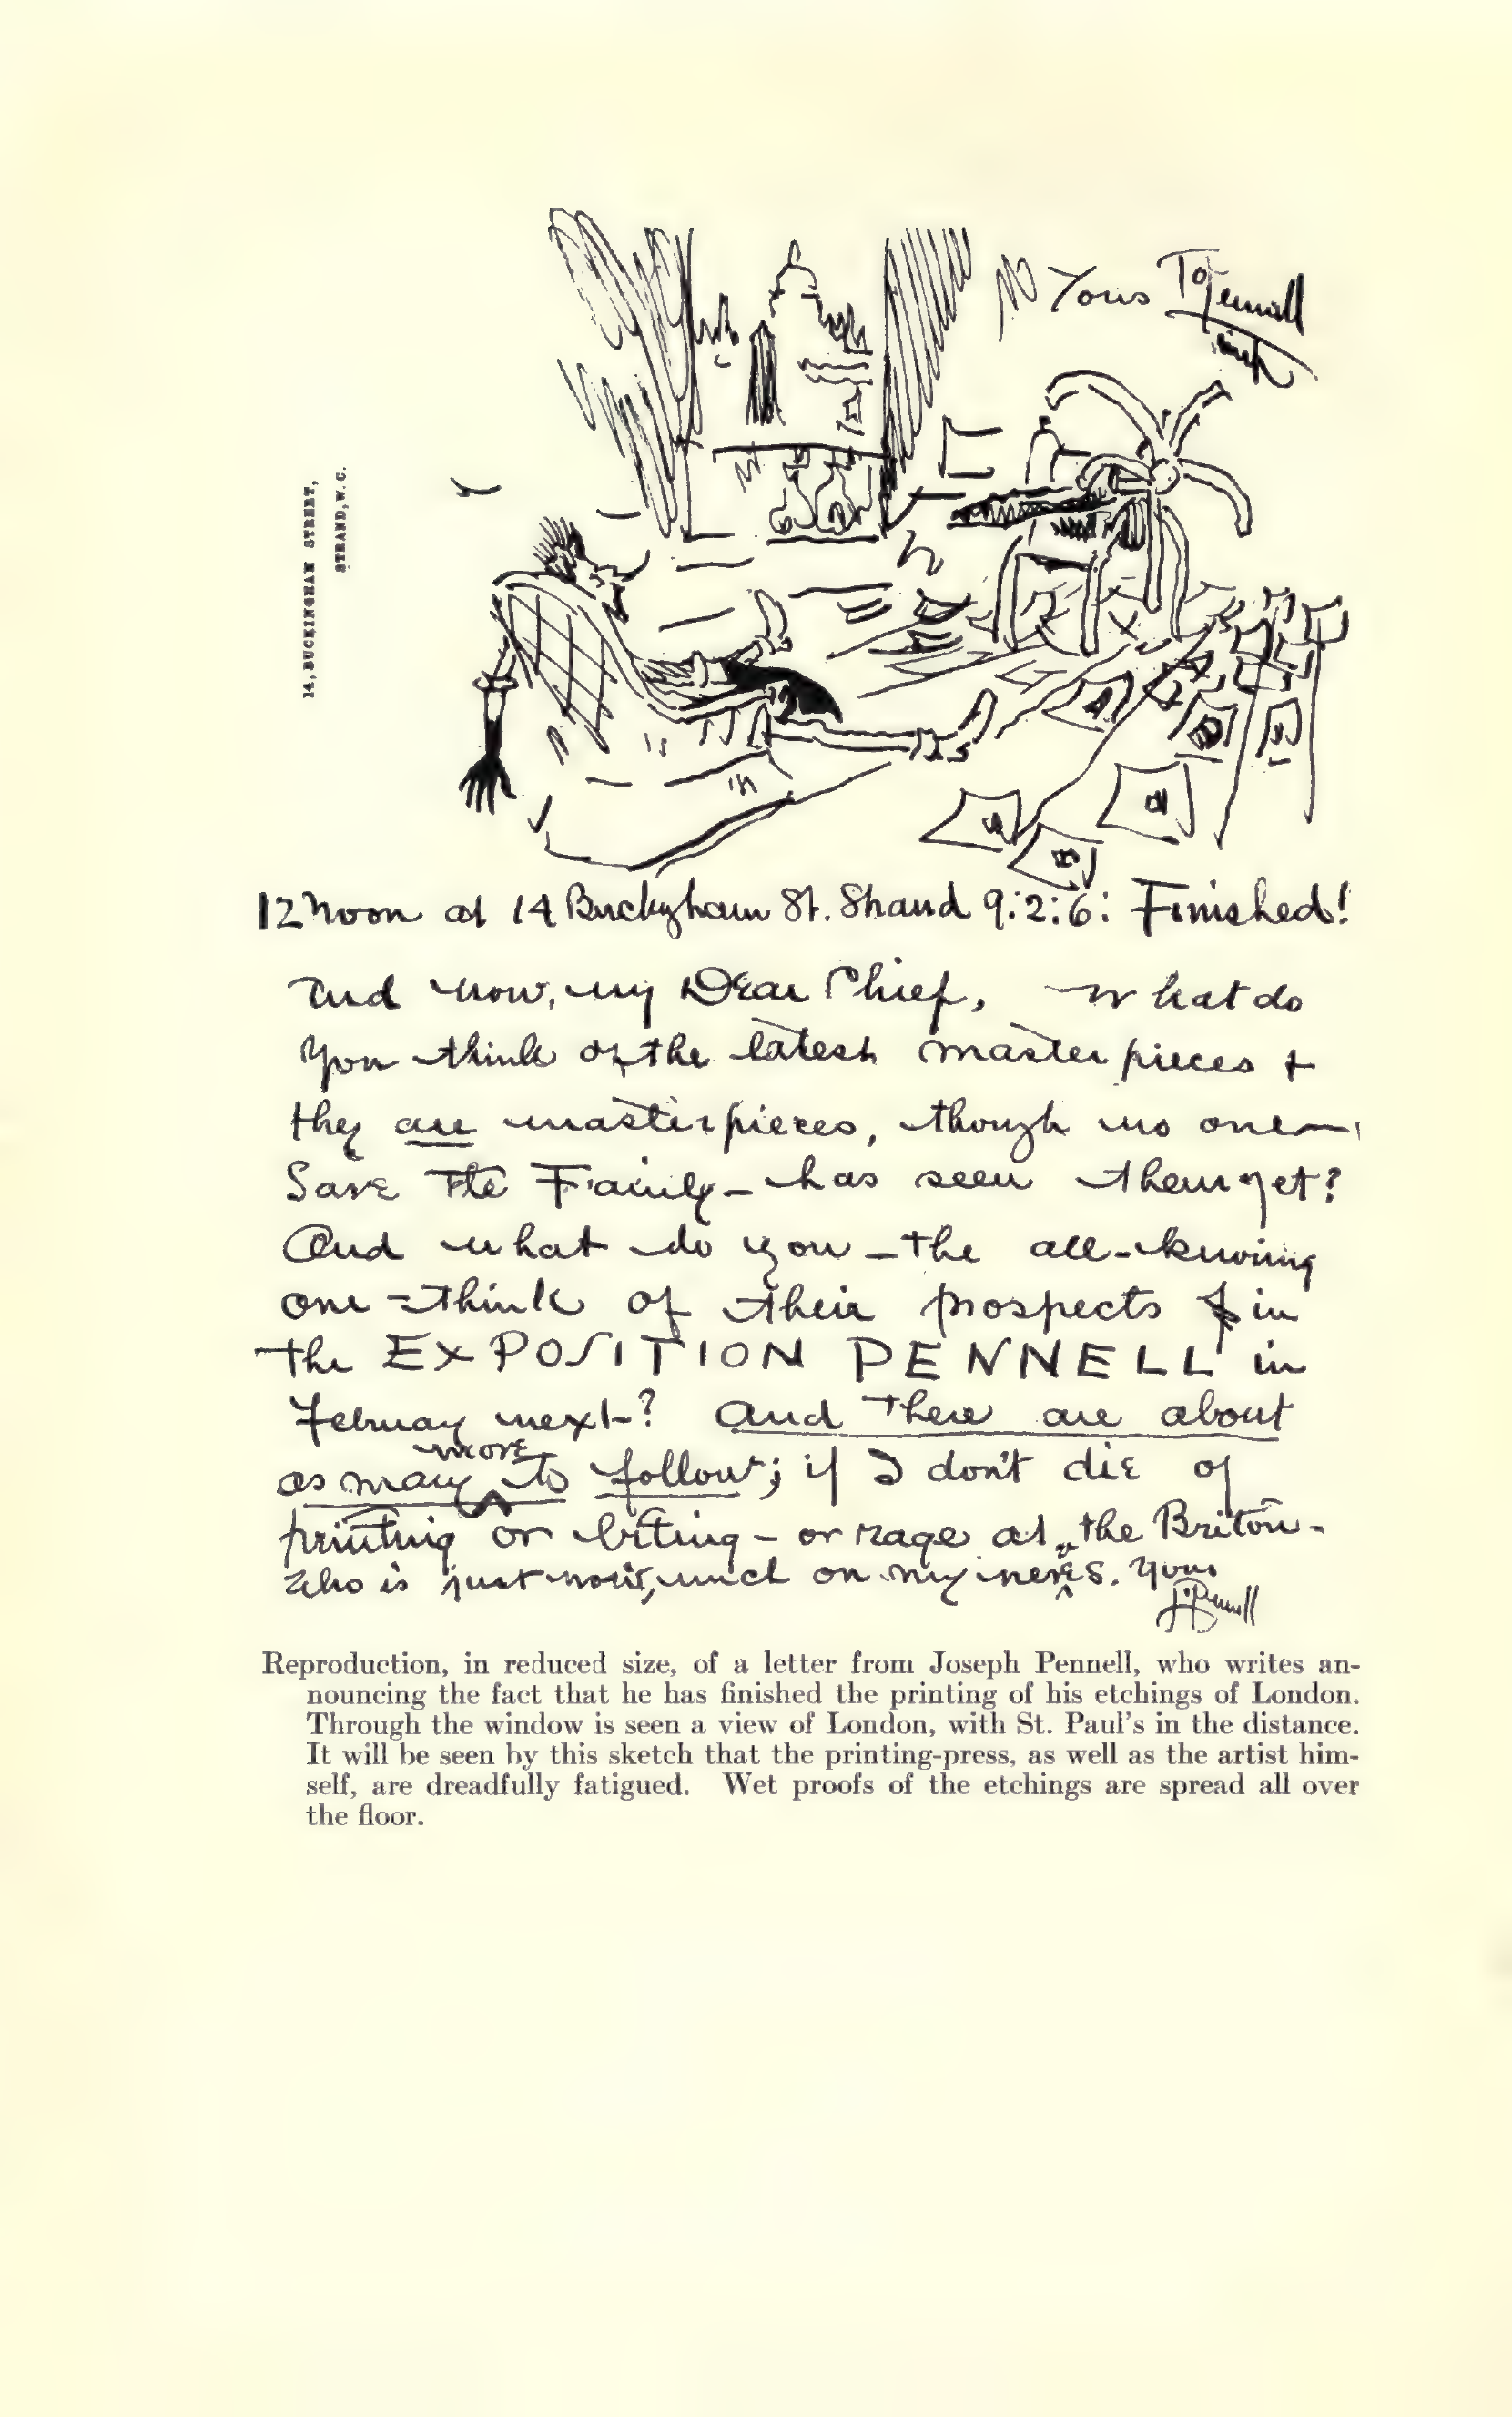 Yours
J Pennell
14, BUCKINGHAM STREET,
STRAND, W. C.
12 Noon at 14 Buckgham St. Strand 9:2:6: Finished!
And now, my Dear Chief, what do
you think of the latest masterpieces +
they are masterpieces, though no one—
Save The Family — has seen them yet?
And what do you — the all-knowing
one — think of their prospects in
the EXPOSITION PENNELL in
Februay next? And there are about
as many more to follow; if I don't die of
printing or biting — or rage at the Briton —
who is just now, much on my nerves. Yours
J Pennell
Reproduction, in reduced size, of a letter from Joseph Pennell, who writes an-
nouncing the fact that he has finished the printing of his etchings of London.
Through the window is seen a view of London, with St. Paul's in the distance.
It will be seen by this sketch that the printing-press, as well as the artist him-
self, are dreadfully fatigued. Wet proofs of the etchings are spread all over
the floor.